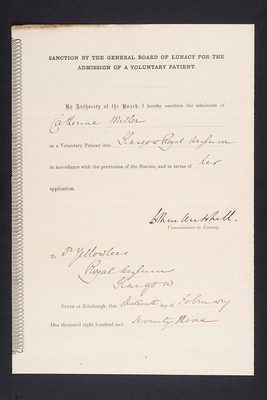 SANCTION BY THE GENERAL BOARD OF LUNACY FOR THE
ADMISSION OF A VOLUNTARY PATIENT.
By Authority of the Board, I hereby sanction the admission of
Catherine Miller
as a Voluntary Patient into Glasgow Royal Asylum
in accordance with the provisions of the Statute, and in terms of her
application.
Commissioner in Lunacy.
To Dr Yellowlees
Royal Asylum
Glasgow
Given at Edinburgh, this day of February
One thousand eight hundred and seventy